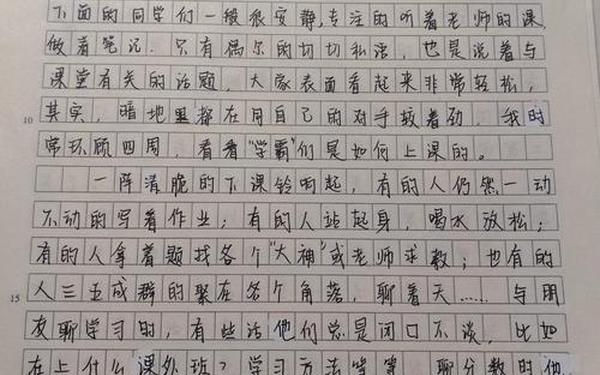 下面的同学们一般很安静,专注的听着老师的课,
做着笔记.只有偶尔的切切私语,也是说着与
课堂有关的话题,大家表面看起来非常轻松,
10 其实,暗地里都在同自己的对手较着劲,我时
常环顾四周,看看"学霸"们是如何上课的。
一阵清脆的下课铃响起,有的人仍然一动
不动的写着作业;有的人站起身,喝水放松;
有的人拿着题找各个"大神"或老师求教;也有的
15 人三五成群的聚在各个角落,聊着天……与朋
友聊学习时,有些话他们总是闭口不谈,比如
在上什么课外班?学习方法等等 聊分数时他